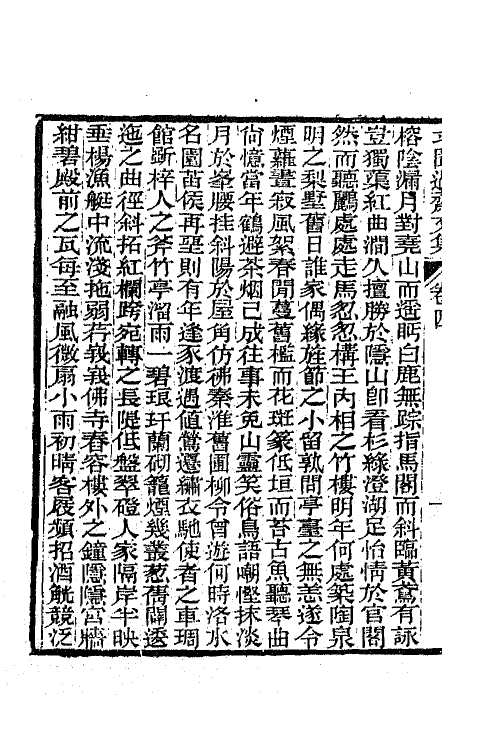 卷四
榕陰漏月對堯山而遙眄白鹿無踪指馬閣而斜臨黃鳶有詠
豈獨蕖紅曲澗久擅勝於隱山卽看杉綠澄湖足怡情於官閣
然而聽鸝處處走馬怱怱構王內相之竹樓明年何處築陶泉
明之梨墅舊日誰家偶緣旌節之小留孰問亭臺之無恙遂令
煙蘿晝寂風絮春閒蔓舊檻而花斑篆低垣而苔古魚聽琴曲
尙憶當年鶴避茶烟已成往事未免山靈笑俗鳥語嘲慳抹淡
月於峯腰挂斜陽於屋角仿佛秦淮舊圃柳令曾遊何時洛水
名園苗侯再堊則有年逢豕渡遇値鶯遷繡衣馳使者之車琱
館斲梓人之斧竹亭溜雨一碧琅玕蘭砌籠煙幾叢葱蒨闢逶
迤之曲徑斜拓紅欄跨宛轉之長隄低盤翠磴人家隔岸半映
垂楊漁艇中流淺拖弱荇峩峩佛寺春容樓外之鐘隱隱宮牆
紺碧殿前之瓦每至融風微扇小雨初晴客屐頻招酒觥競泛